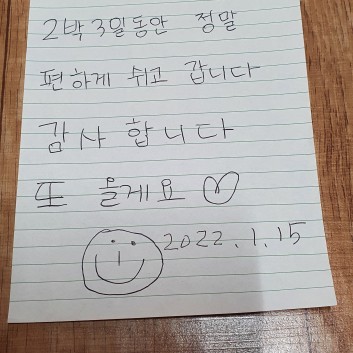 2박3일동안 정말
편하게 쉬고 갑니다
감사 합니다
또 올게요 ♡
2022.1.15